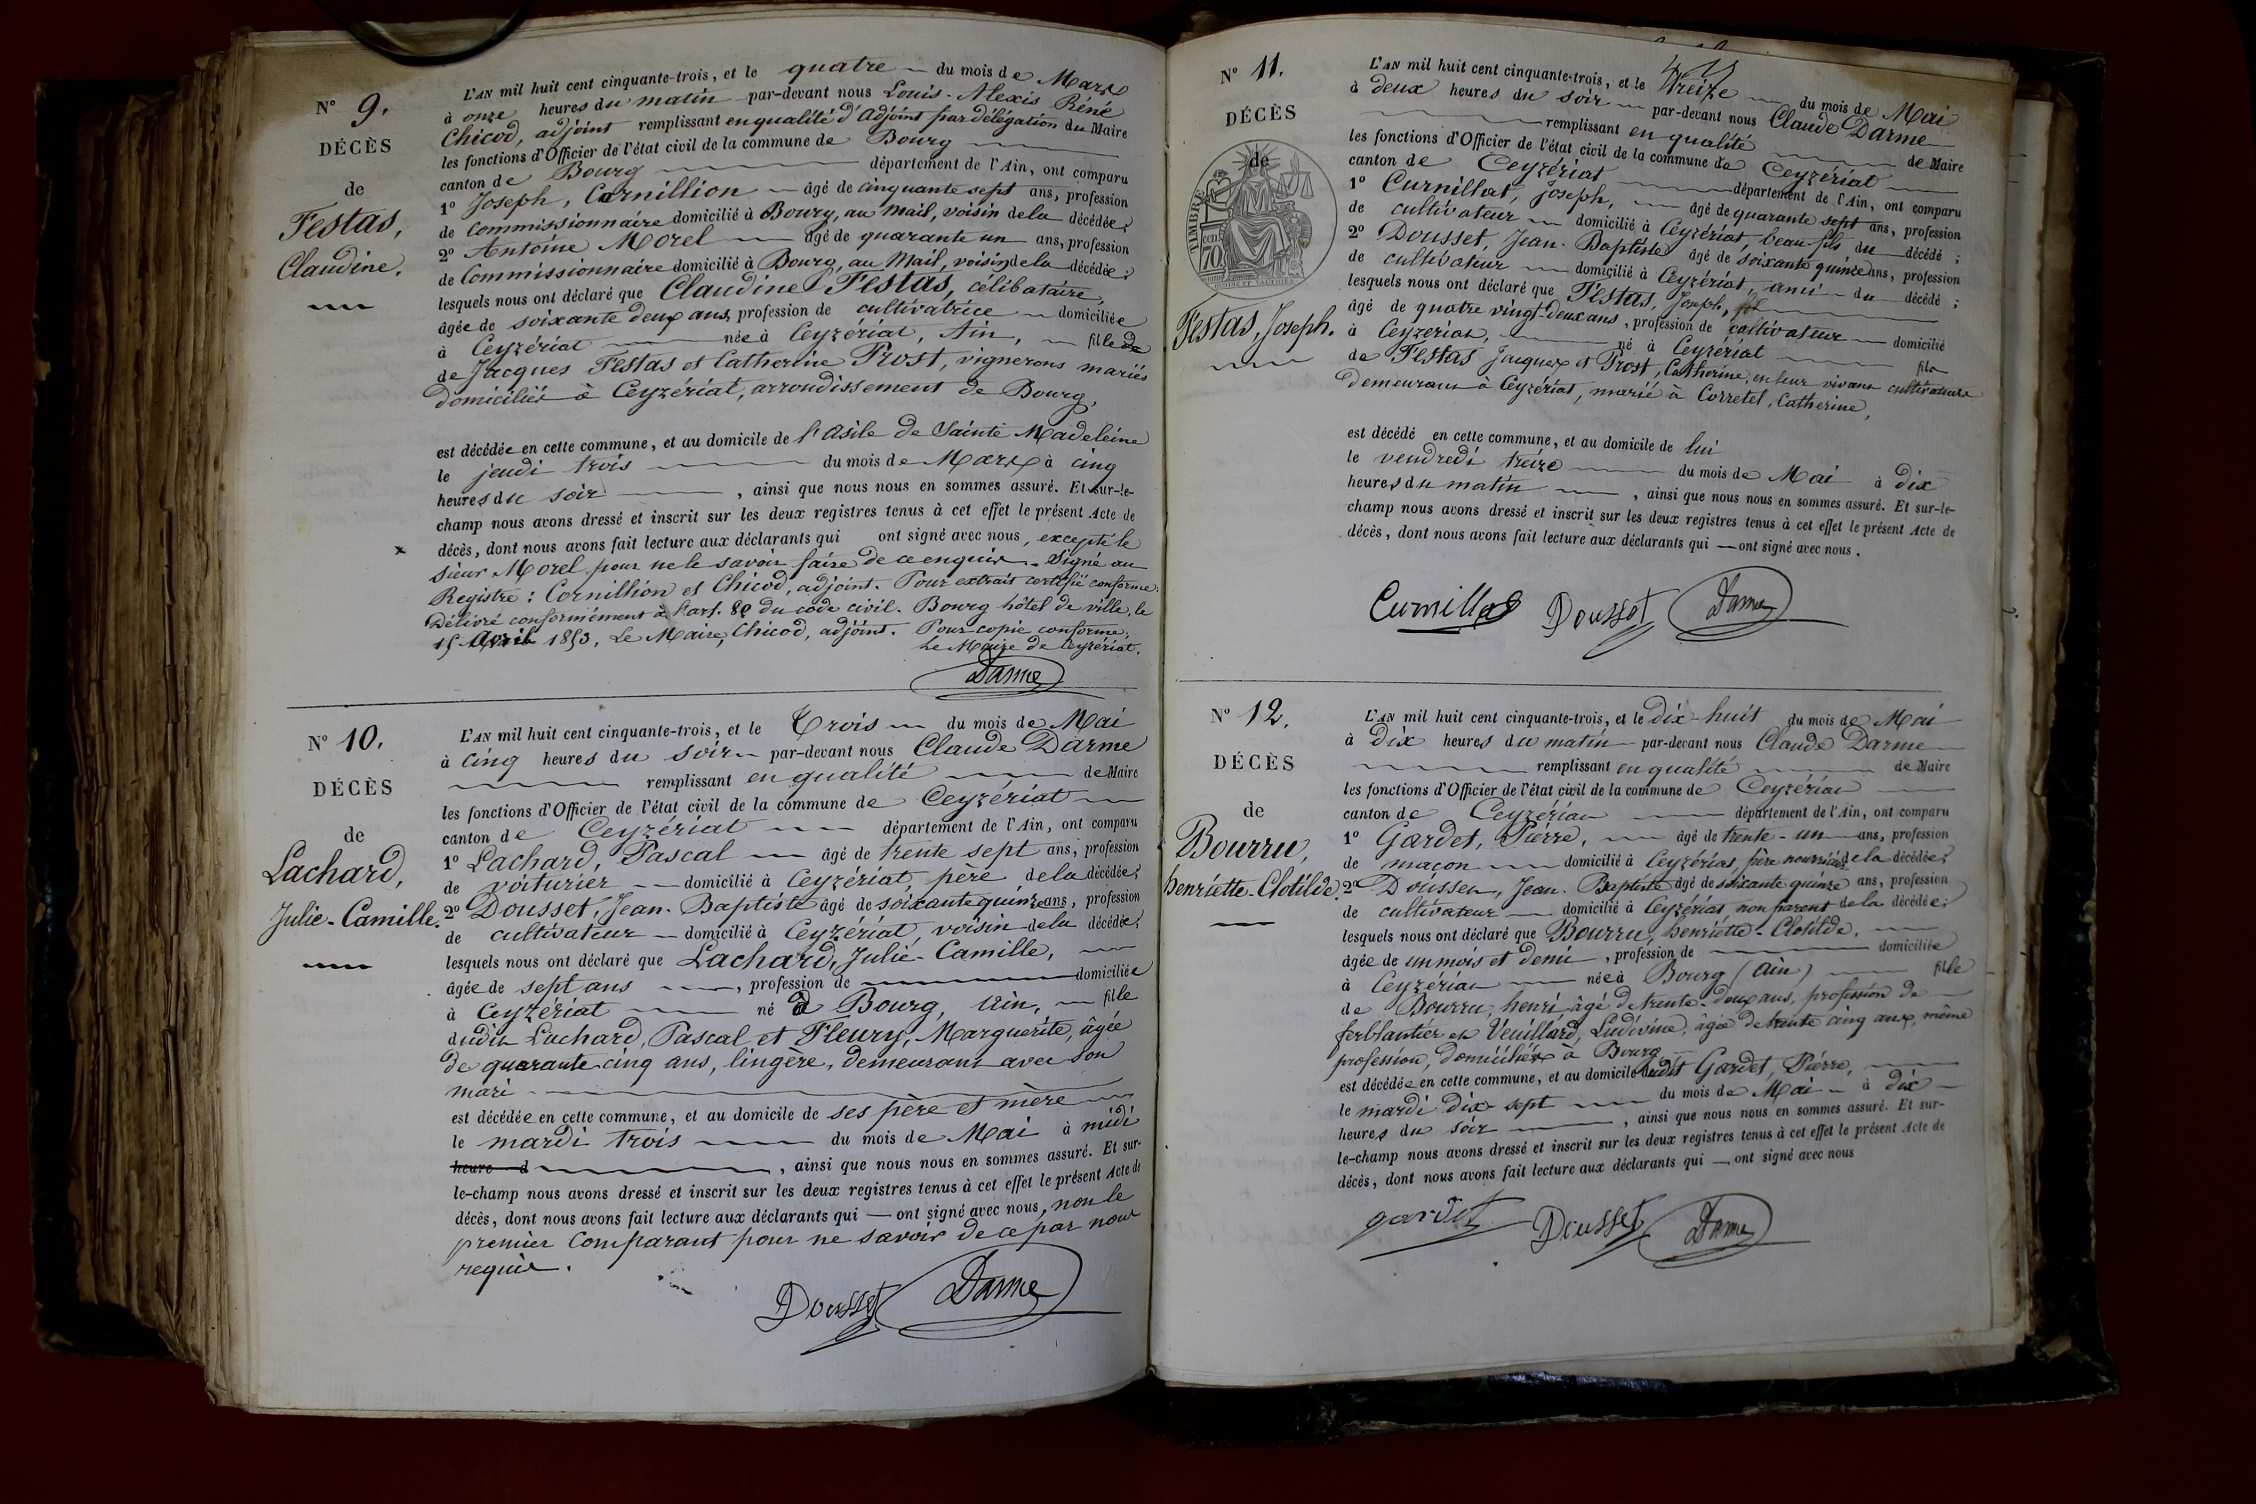 N° 9.
DÉCÈS
de
Festas,
Claudine.
L'AN mil huit cent cinquante-trois, et le quatre du mois de Mars
à onze heures du matin par-devant nous Louis-Alexis Réné
Chicod, adjoint remplissant en qualité d'Adjoint par délégation du Maire
les fonctions d'Officier de l'état civil de la commune de Bourg
canton de Bourg département de l'Ain, ont comparu
1° Joseph, Cornillion âgé de cinquante sept ans, profession
de commissionnaire domicilié à Bourg, au Mail, voisin de la décédée;
2° Antoine Morel âgé de quarante un ans, profession
de Commissionnaire domicilié à Bourg, au Mail, voisin de la décédée;
lesquels nous ont déclaré que Claudine Festas, célibataire,
âgée de soixante deux ans, profession de cultivatrice domiciliée
à Ceyzériat née à Ceyzériat, Ain, fille de
de Jacques Festas et Catherine Prost, vignerons mariés
domiciliés à Ceyzériat, arrondissement de Bourg,
est décédée en cette commune, et au domicile de l'asile de Sainte Madeleine
le jeudi trois du mois de Mars à cinq
heures du soir, ainsi que nous nous en sommes assuré. Et sur-le-
champ nous avons dressé et inscrit sur les deux registres tenus à cet effet le présent Acte de
décès, dont nous avons fait lecture aux déclarants qui ont signé avec nous, excepté le
sieur Morel pour ne le savoir faire de ce enquis. Signé au
Registre: Cornillion et Chicod, adjoint. Pour extrait certifié conforme.
Délivré conformément à l'art. 80 du code civil. Bourg hôtel de ville, le
15 Avril 1853. Le Maire, Chicod, adjoint. Pour copie conforme,
Le Maire de Ceyzériat.
Darme
N° 10.
DÉCÈS
de
Lachard,
Julie-Camille.
L'AN mil huit cent cinquante-trois, et le Trois du mois de Mai
à cinq heures du soir par-devant nous Claude Darme
remplissant en qualité de Maire
les fonctions d'Officier de l'état civil de la commune de Ceyzériat
canton de Ceyzériat département de l'Ain, ont comparu
1° Lachard, Pascal âgé de trente sept ans, profession
de voiturier domicilié à Ceyzériat, père de la décédée;
2° Dousset, Jean-Baptiste âgé de soixante quinze ans, profession
de cultivateur domicilié à Ceyzériat, voisin de la décédée;
lesquels nous ont déclaré que Lachard, Julie-Camille,
âgée de sept ans, profession de domiciliée
à Ceyzériat né à Bourg, Ain, fille
dudit Lachard, Pascal et Fleury, Marguerite, âgée
de quarante cinq ans, lingère, demeurant avec son
mari
est décédée en cette commune, et au domicile de ses père et mère
le mardi trois du mois de Mai à midi
heure d, ainsi que nous nous en sommes assuré. Et sur-
le-champ nous avons dressé et inscrit sur les deux registres tenus à cet effet le présent Acte de
décès, dont nous avons fait lecture aux déclarants qui — ont signé avec nous, non le
premier comparant pour ne savoir de ce par nous
requis.
Dousset Darme
N° 11.
DÉCÈS
de
TIMBRE
cen. 70
Festas, Joseph.
L'AN mil huit cent cinquante-trois, et le treize du mois de Mai
à deux heures du soir par-devant nous Claude Darme
remplissant en qualité de Maire
les fonctions d'Officier de l'état civil de la commune de Ceyzériat
canton de Ceyzériat département de l'Ain, ont comparu
1° Curnillat, Joseph, âgé de quarante sept ans, profession
de cultivateur domicilié à Ceyzériat, beau-fils du décédé;
2° Dousset, Jean-Baptiste âgé de soixante quinze ans, profession
de cultivateur domicilié à Ceyzériat, ami du décédé;
lesquels nous ont déclaré que Festas, Joseph,
âgé de quatre vingt-deux ans, profession de cultivateur domicilié
à Ceyzériat, né à Ceyzériat fils
de Festas Jacques et Prost, Catherine, en leur vivant cultivateurs
demeurant à Ceyzériat, marié à Corretel, Catherine,
est décédé en cette commune, et au domicile de lui
le vendredi treize du mois de Mai à dix
heures du matin, ainsi que nous nous en sommes assuré. Et sur-le-
champ nous avons dressé et inscrit sur les deux registres tenus à cet effet le présent Acte de
décès, dont nous avons fait lecture aux déclarants qui — ont signé avec nous.
Curnillat Dousset Darme
N° 12.
DÉCÈS
de
Bourru,
henriette-Clotilde.
L'AN mil huit cent cinquante-trois, et le dix-huit du mois de Mai
à Dix heures du matin par-devant nous Claude Darme
remplissant en qualité de Maire
les fonctions d'Officier de l'état civil de la commune de Ceyzériat
canton de Ceyzériat département de l'Ain, ont comparu
1° Gardet, Pierre, âgé de trente-un ans, profession
de maçon domicilié à Ceyzériat père nourricier de la décédée;
2° Dousset, Jean-Baptiste âgé de soixante quinze ans, profession
de cultivateur domicilié à Ceyzériat non parent de la décédée;
lesquels nous ont déclaré que Bourru, henriette-Clotilde,
âgée de un mois et demi, profession de domiciliée
à Ceyzériat née à Bourg (Ain) fille
de Bourru, henri, âgé de trente-deux ans, profession de
ferblantier et Veuillard, Ludivine, âgée de trente cinq ans, même
profession, domiciliés à Bourg
est décédée en cette commune, et au domicile dudit Gardet, Pierre,
le mardi dix-sept du mois de Mai à dix
heures du soir, ainsi que nous nous en sommes assuré. Et sur-
le-champ nous avons dressé et inscrit sur les deux registres tenus à cet effet le présent Acte de
décès, dont nous avons fait lecture aux déclarants qui — ont signé avec nous
gardet Dousset Darme